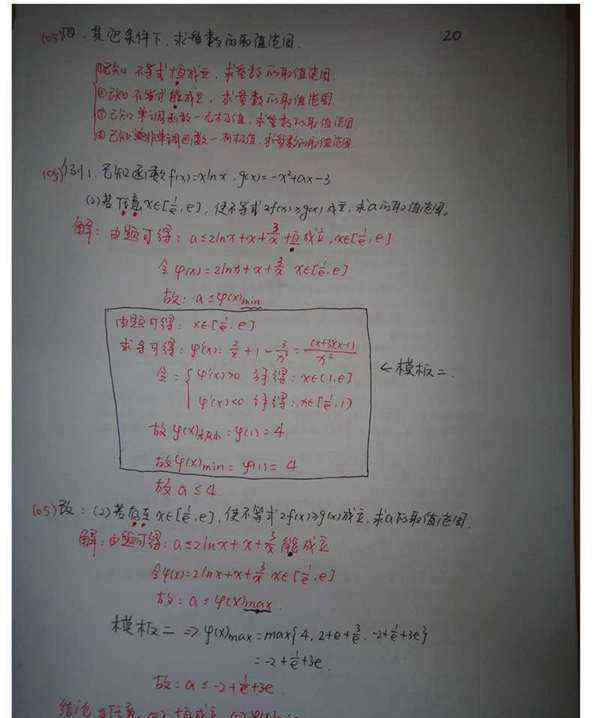 20
(05)四、其它条件下，求参数的取值范围.
①已知不等式恒成立，求参数的取值范围.
②已知不等式能成立，求参数的取值范围.
③已知单调函数—无极值，求参数的取值范围.
④已知非单调函数—有极值，求参数的取值范围.
(05)例1、已知函数f(x)=xlnx，g(x)=-x²+ax-3
(2)若存在x∈[1/e,e]，使不等式2f(x)≥g(x)成立，求a的取值范围.
解：由题可得：a≤2lnx+x+3/x 恒成立，x∈[1/e,e]
令φ(x)=2lnx+x+3/x x∈[1/e,e]
故：a≤φ(x)min
由题可得：x∈[1/e,e]
求导可得：φ'(x)=2/x+1-3/x²=(x+3)(x-1)/x²
令={φ'(x)>0 得：x∈(1,e]
φ'(x)<0 得：x∈[1/e,1)
←模板二.
故φ(x)极小=φ(1)=4
故φ(x)min=φ(1)=4
故a≤4.
(05)改：(2)若存在x∈[1/e,e]，使不等式2f(x)≥g(x)成立，求a的取值范围.
解：由题可得：a≤2lnx+x+3/x 能成立
令φ(x)=2lnx+x+3/x x∈[1/e,e]
故：a≤φ(x)max.
模板二⇒φ(x)max=max{4，2+e+3/e，-2+1/e+3e}
=-2+1/e+3e.
故：a≤-2+1/e+3e.